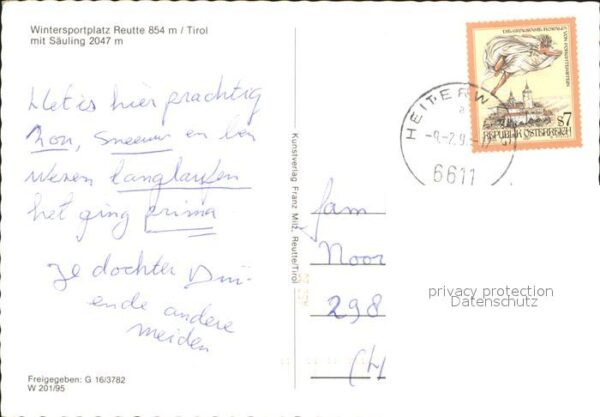 Wintersportplatz Reutte 854 m / Tirol
mit Säuling 2047 m
Het is hier prachtig
zon, sneeuw en ben
wezen langlaufen
het ging prima
Je dochter
ende andere
meiden
Freigegeben: G 16/3782
W 201/95
Kunstverlag Franz Milz, Reutte/Tirol
HEITERW
a
6611
VON FORCHTENSTEIN
s7
REPUBLIK ÖSTERREICH
fam
Noor
298
privacy protection
Datenschutz